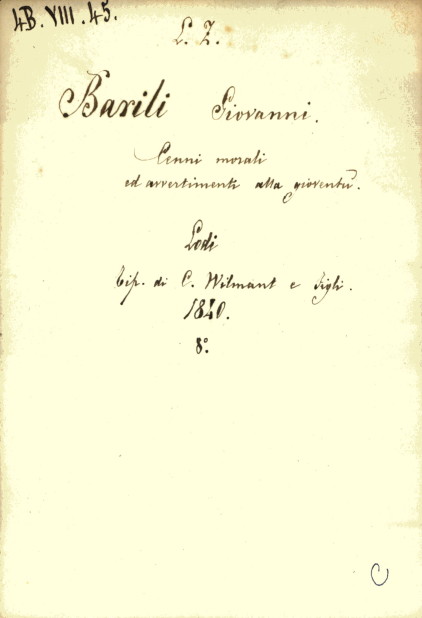 4B.VIII.45.
L. Z.
Barili Giovanni.
Cenni morali
ed avvertimenti alla gioventù.
Lodi
tip. di C. Wilmant e figli.
1840.
8°.
C